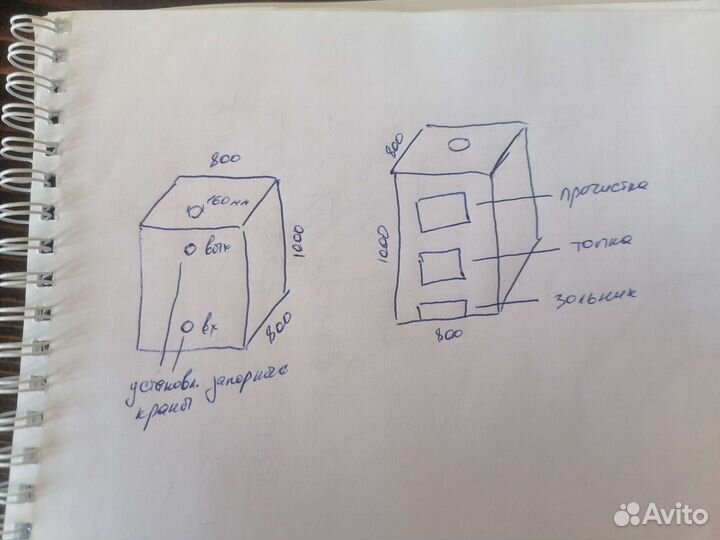 800
160мм
вых
1000
вх
800
установл. запорного
краны
800
прочистка
1000
топка
зольник
800
Avito